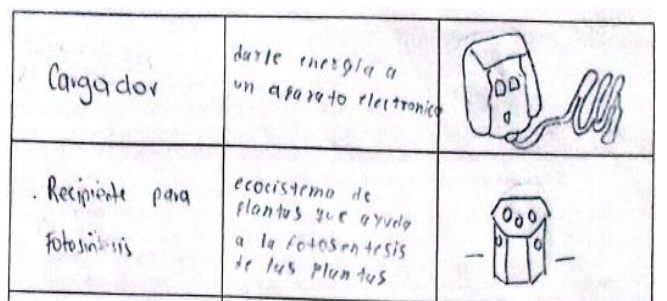 Cargador
darle energia a
un aparato electronico
. Recipiente para
Fotosíntesis
ecocistema de
plantas que ayuda
a la fotosentesis
de las plantas